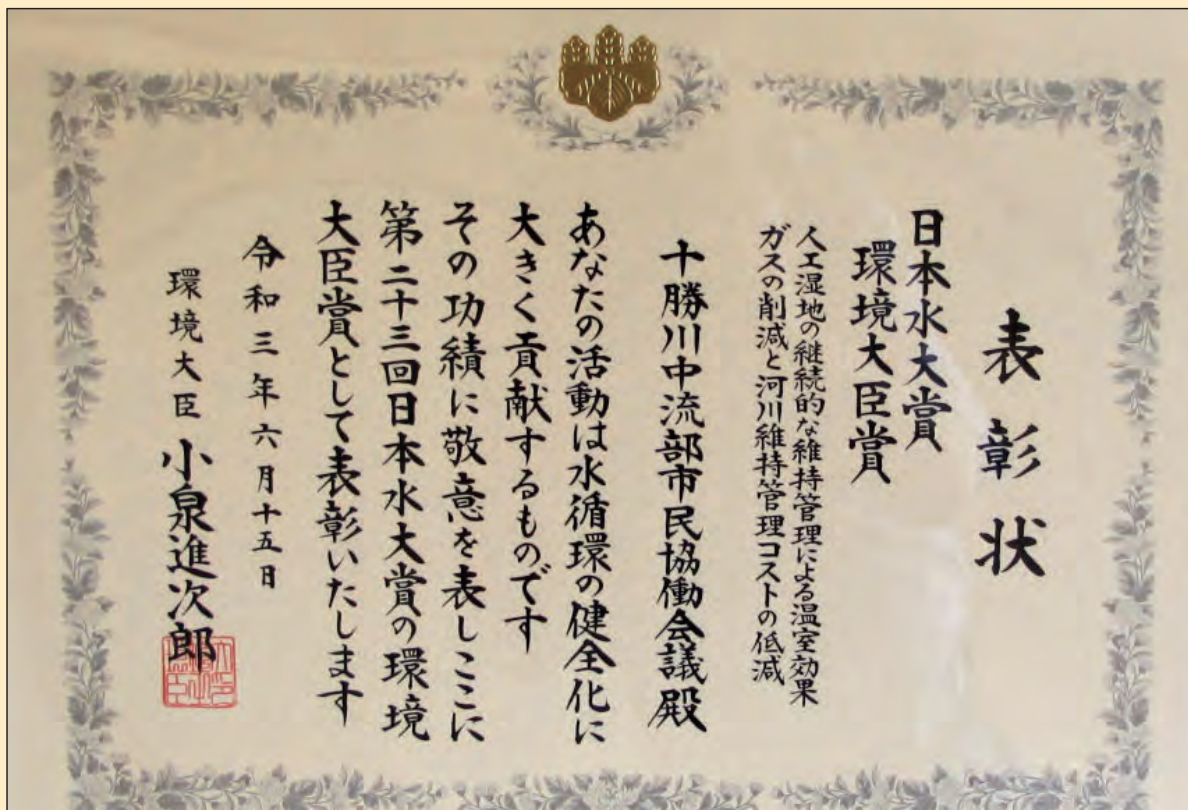 表彰状
日本水大賞
環境大臣賞
人工湿地の継続的な維持管理による温室効果
ガスの削減と河川維持管理コストの低減
十勝川中流部市民協働会議殿
あなたの活動は水循環の健全化に
大きく貢献するものです
その功績に敬意を表しここに
第二十三回日本水大賞の環境
大臣賞として表彰いたします
令和三年六月十五日
環境大臣 小泉進次郎